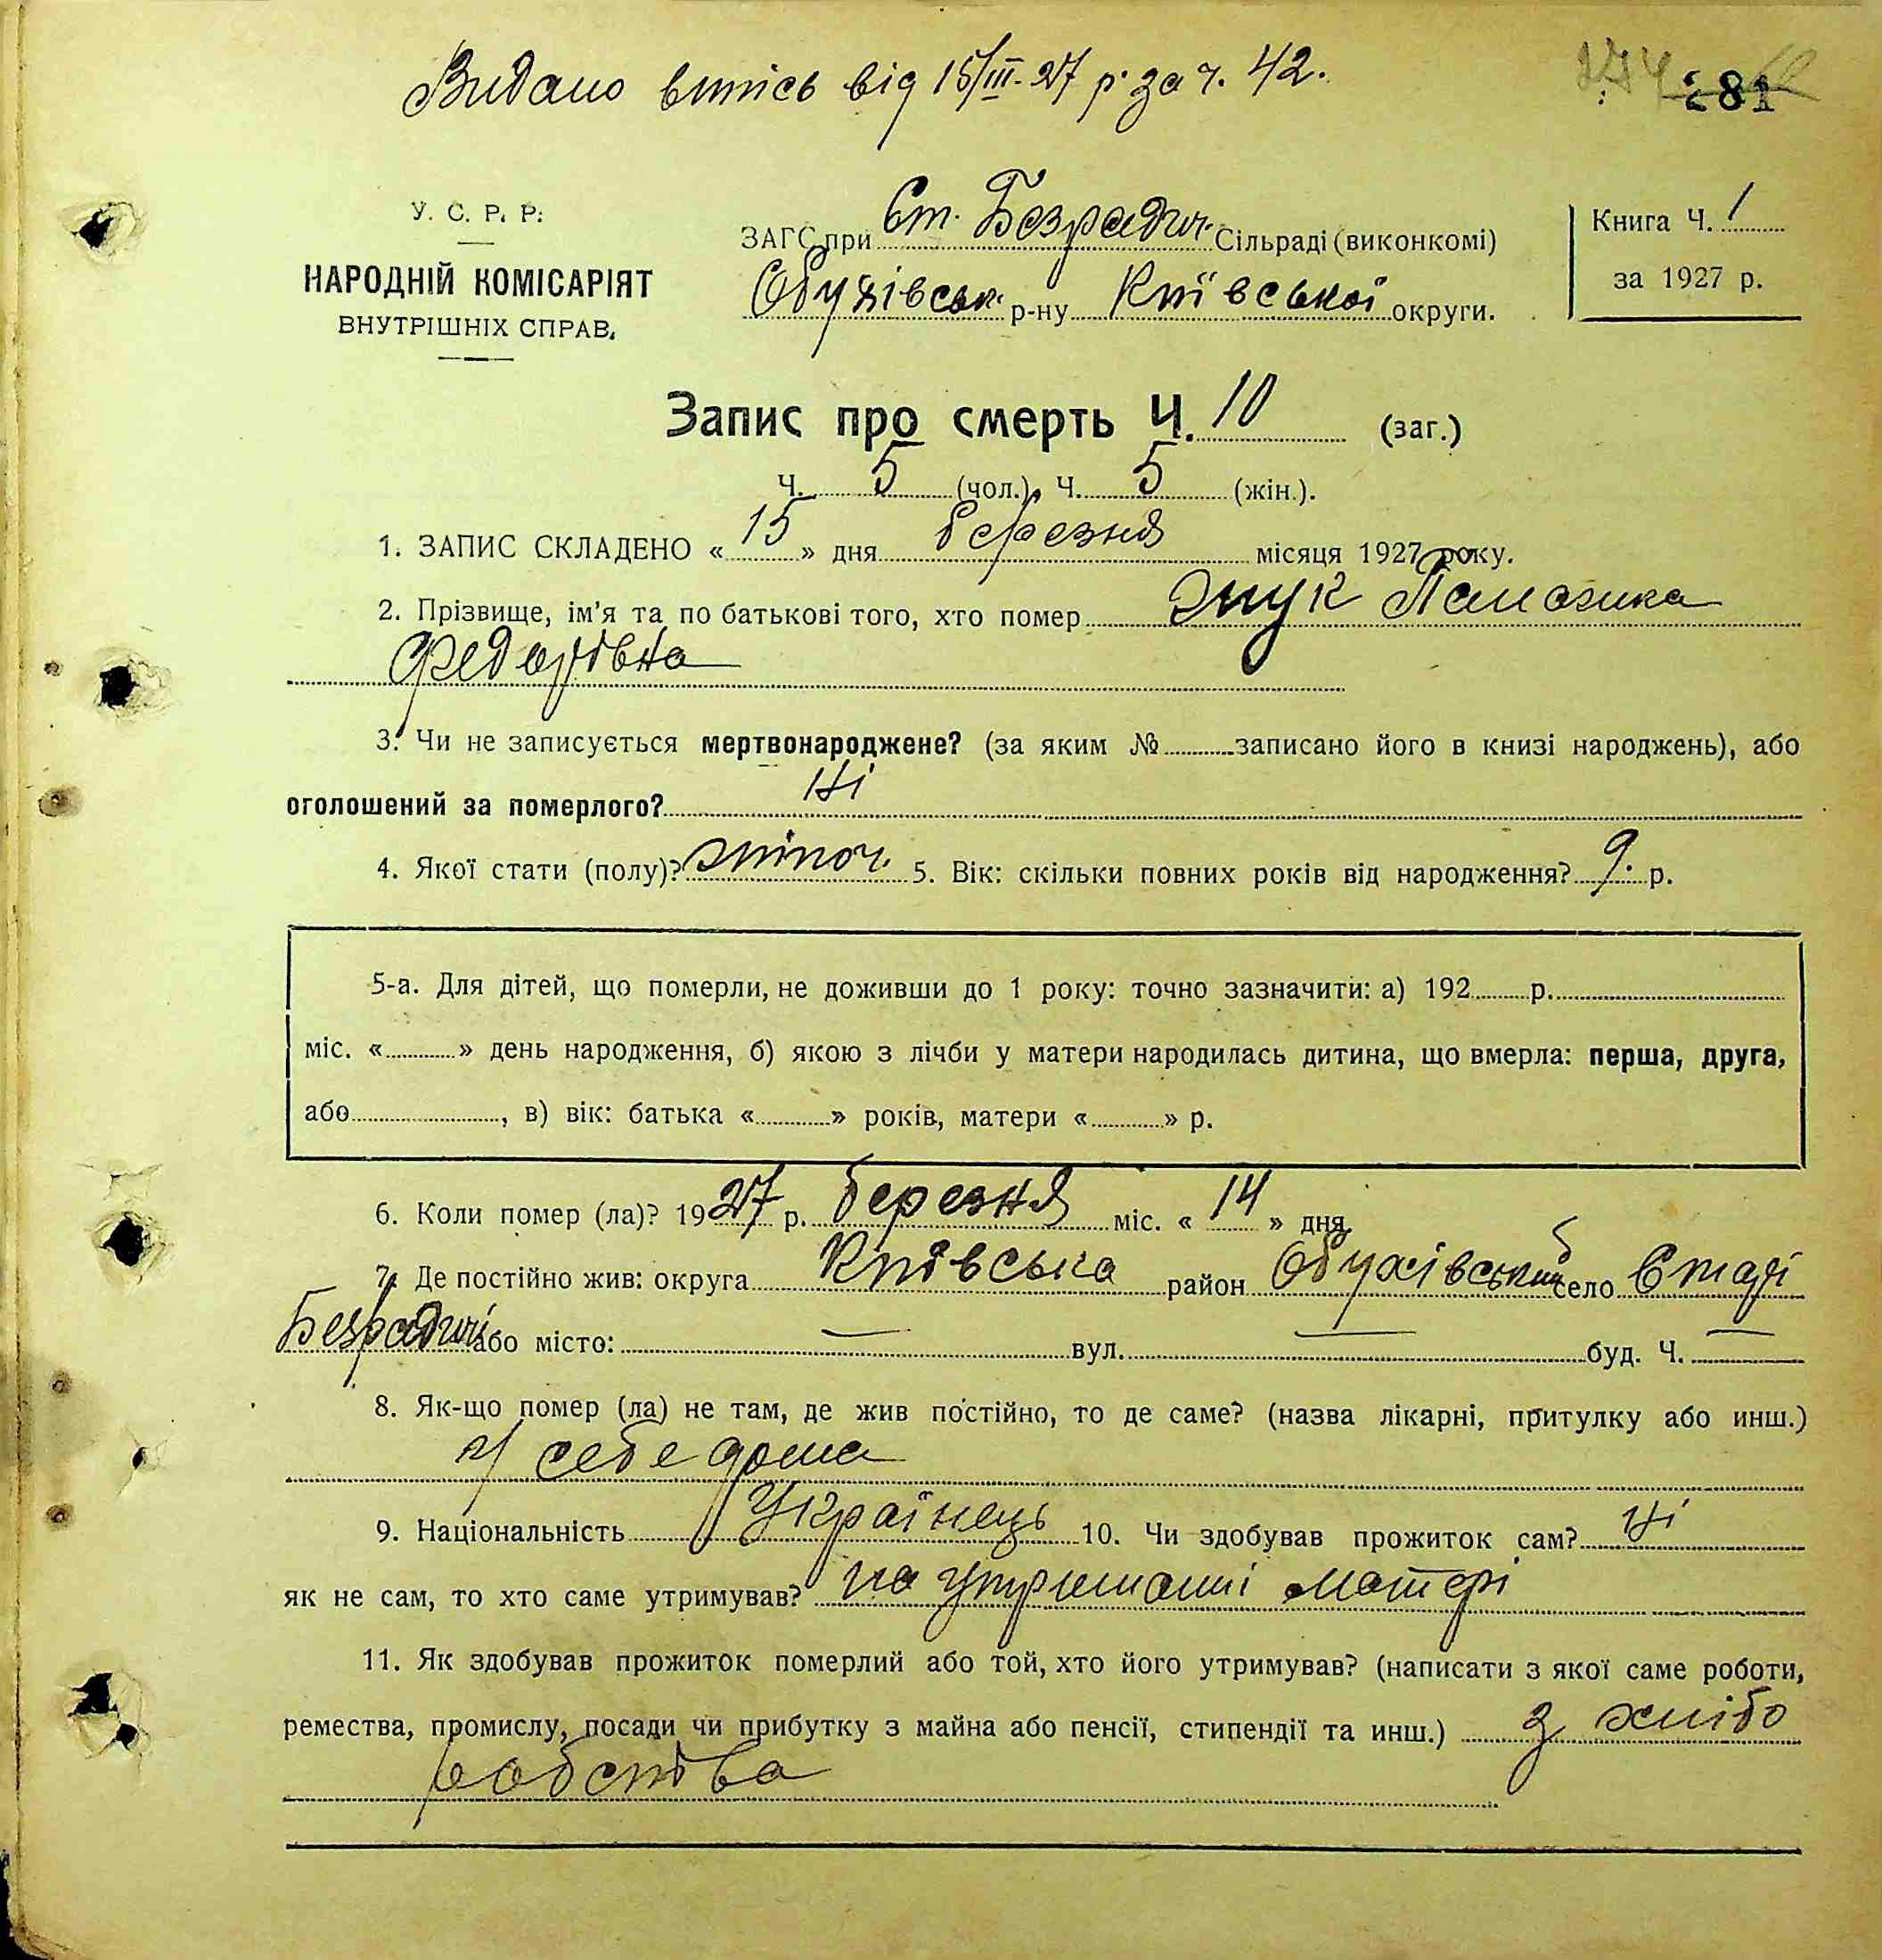 Видано витісь від 15/III-27 р. за ч. 42.
281
У. С. Р. Р.
НАРОДНІЙ КОМІСАРІЯТ
ВНУТРІШНІХ СПРАВ.
ЗАГС при Ст. Безрадич. Сільраді (виконкомі)
Обухівськ. р-ну Київської округи.
Книга Ч. 1
за 1927 р.
Запис про смерть Ч. 10 (заг.)
Ч. 5 (чол.), Ч. 5 (жін.).
1. ЗАПИС СКЛАДЕНО « 15 » дня березня місяця 1927 року.
2. Прізвище, ім'я та по батькові того, хто помер
Федорівна
3. Чи не записується мертвонароджене? (за яким № записано його в книзі народжень), або
оголошений за померлого? Ні
4. Якої стати (полу)? жіноч. 5. Вік: скільки повних років від народження? 9. р.
5-а. Для дітей, що померли, не доживши до 1 року: точно зазначити: а) 192 р.
міс. « » день народження, б) якою з лічби у матери народилась дитина, що вмерла: перша, друга,
або , в) вік: батька « » років, матери « » р.
6. Коли помер (ла)? 1927 р. березня міс. « 14 » дня
7. Де постійно жив: округа Київська район Обухівський село Старі
Безрадичі або місто: — вул. — буд. Ч. —
8. Як-що помер (ла) не там, де жив постійно, то де саме? (назва лікарні, притулку або инш.)
У себе дома
9. Національність Українець 10. Чи здобував прожиток сам? Ні
як не сам, то хто саме утримував? на утриманні матері
11. Як здобував прожиток померлий або той, хто його утримував? (написати з якої саме роботи,
ремества, промислу, посади чи прибутку з майна або пенсії, стипендії та инш.) з хлібо
робства